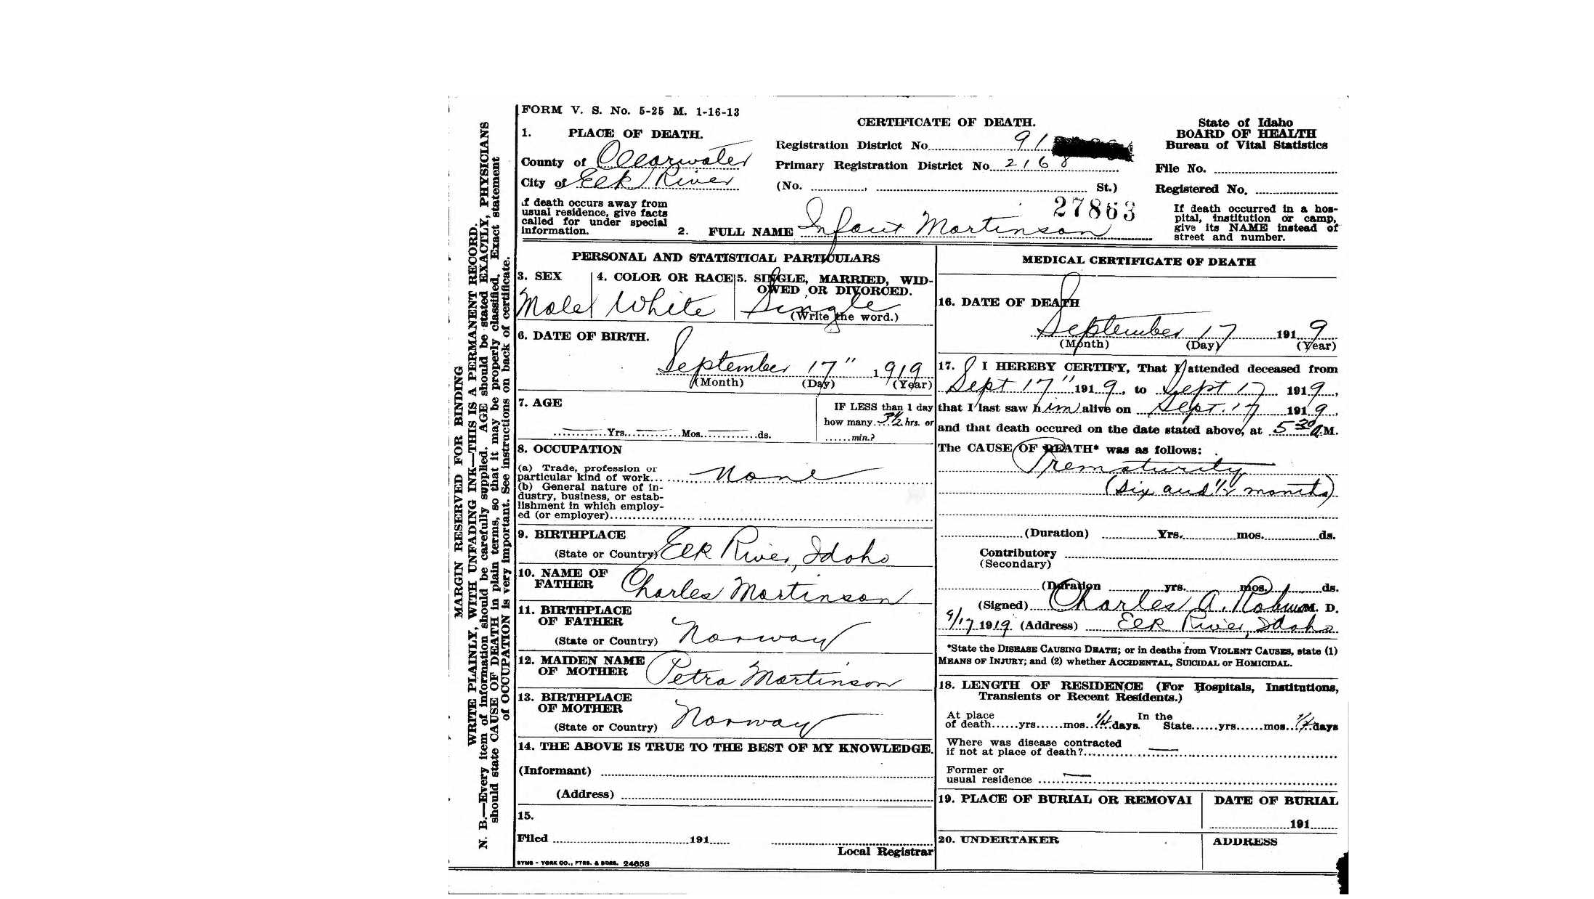 FORM V. S. No. 5-25 M. 1-16-13
CERTIFICATE OF DEATH.
State of Idaho
BOARD OF HEALTH
Bureau of Vital Statistics
1. PLACE OF DEATH.
County of Clearwater
City of Elk River
Registration District No. 91
Primary Registration District No. 2168
(No. , St.)
File No.
Registered No.
27863
if death occurs away from
usual residence, give facts
called for under special
information.
2. FULL NAME Infant Martinson
If death occurred in a hos-
pital, institution or camp,
give its NAME instead of
street and number.
MARGIN RESERVED FOR BINDING
WRITE PLAINLY, WITH UNFADING INK—THIS IS A PERMANENT RECORD.
N. B.—Every item of information should be carefully supplied. AGE should be stated EXACTLY, PHYSICIANS
should state CAUSE OF DEATH in plain terms, so that it may be properly classified. Exact statement
of OCCUPATION is very important. See instructions on back of certificate.
PERSONAL AND STATISTICAL PARTICULARS
3. SEX
Male
4. COLOR OR RACE
White
5. SINGLE, MARRIED, WID-
OWED OR DIVORCED.
Single
(Write the word.)
6. DATE OF BIRTH.
September 17" 1919
(Month) (Day) (Year)
7. AGE
Yrs. Mos. ds.
IF LESS than 1 day
how many hrs. or
min.?
8. OCCUPATION
(a) Trade, profession or
particular kind of work... None
(b) General nature of in-
dustry, business, or estab-
lishment in which employ-
ed (or employer)
9. BIRTHPLACE
(State or Country) Elk River, Idaho
10. NAME OF
FATHER Charles Martinson
11. BIRTHPLACE
OF FATHER
(State or Country) Norway
12. MAIDEN NAME
OF MOTHER Petra Martinson
13. BIRTHPLACE
OF MOTHER
(State or Country) Norway
14. THE ABOVE IS TRUE TO THE BEST OF MY KNOWLEDGE.
(Informant)
(Address)
15.
Filed 191
Local Registrar
SYMS - YORK CO., PTRS. & BDRS. 24858
MEDICAL CERTIFICATE OF DEATH
16. DATE OF DEATH
September 17 1919
(Month) (Day) (Year)
17. I HEREBY CERTIFY, That I attended deceased from
Sept 17" 1919, to Sept 17 1919,
that I last saw him alive on Sept. 17 1919,
and that death occured on the date stated above, at 5 30 A M.
The CAUSE OF DEATH* was as follows:
Prematurity
(Six and 1/2 months)
(Duration) Yrs. mos. ds.
Contributory
(Secondary)
(Duration yrs. mos. ds.
(Signed) Charles A. M. D.
9/17 1919 (Address) Elk River, Idaho
*State the DISEASE CAUSING DEATH; or in deaths from VIOLENT CAUSES, state (1)
MEANS OF INJURY; and (2) whether ACCIDENTAL, SUICIDAL or HOMICIDAL.
18. LENGTH OF RESIDENCE (For Hospitals, Institutions,
Transients or Recent Residents.)
At place
of death yrs. mos. 1/4 days.
In the
State yrs. mos. 1/4 days
Where was disease contracted
if not at place of death? —
Former or
usual residence —
19. PLACE OF BURIAL OR REMOVAL
DATE OF BURIAL
191
20. UNDERTAKER
ADDRESS